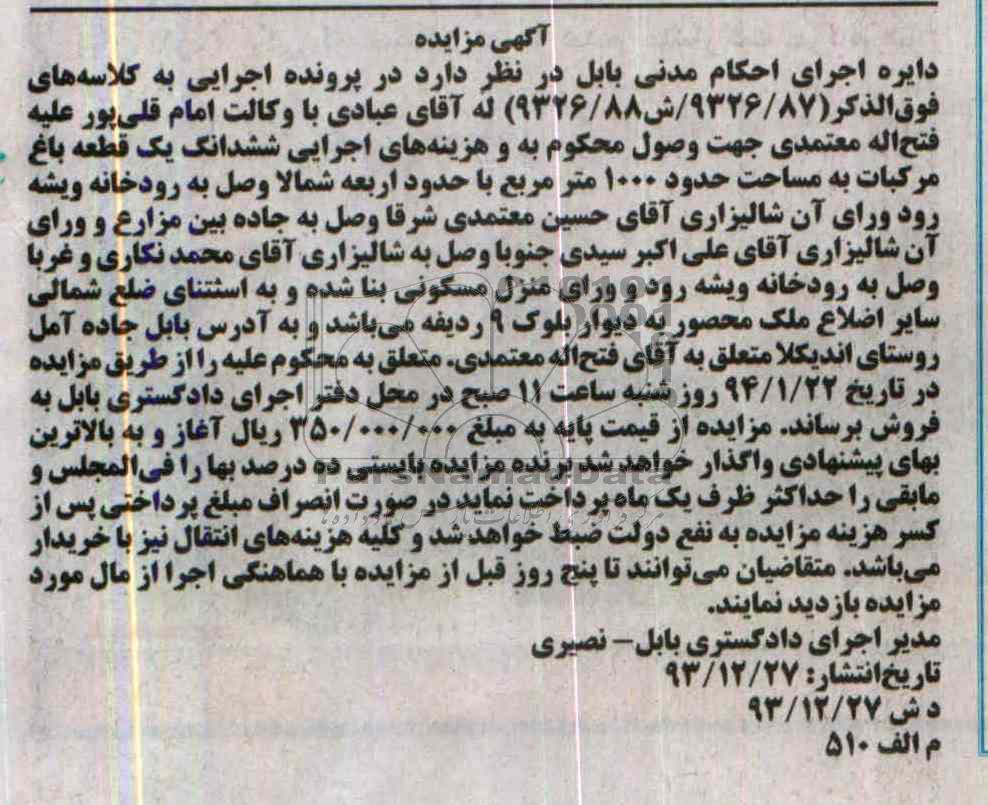 آگهی مزایده
دایره اجرای احکام مدنی بابل در نظر دارد در پرونده اجرایی به کلاسه‌های
فوق‌الذکر(۹۳۲۶/۸۷/ش۹۳۲۶/۸۸) له آقای عبادی با وکالت امام قلی‌پور علیه
فتح‌اله معتمدی جهت وصول محکوم به و هزینه‌های اجرایی ششدانگ یک قطعه باغ
مرکبات به مساحت حدود ۱۰۰۰ متر مربع با حدود اربعه شمالا وصل به رودخانه ویشه
رود ورای آن شالیزاری آقای حسین معتمدی شرقا وصل به جاده بین مزارع و ورای
آن شالیزاری آقای علی اکبر سیدی جنوبا وصل به شالیزاری آقای محمد نکاری و غربا
وصل به رودخانه ویشه رود و ورای منزل مسکونی بنا شده و به استثنای ضلع شمالی
سایر اضلاع ملک محصور به دیوار بلوک ۹ ردیفه می‌باشد و به آدرس بابل جاده آمل
روستای اندیکلا متعلق به آقای فتح‌اله معتمدی. متعلق به محکوم علیه را از طریق مزایده
در تاریخ ۹۴/۱/۲۲ روز شنبه ساعت ۱۱ صبح در محل دفتر اجرای دادگستری بابل به
فروش برساند. مزایده از قیمت پایه به مبلغ ۳۵۰/۰۰۰/۰۰۰ ریال آغاز و به بالاترین
بهای پیشنهادی واگذار خواهد شد برنده مزایده بایستی ده درصد بها را فی‌المجلس و
مابقی را حداکثر ظرف یک ماه پرداخت نماید در صورت انصراف مبلغ پرداختی پس از
کسر هزینه مزایده به نفع دولت ضبط خواهد شد و کلیه هزینه‌های انتقال نیز با خریدار
می‌باشد. متقاضیان می‌توانند تا پنج روز قبل از مزایده با هماهنگی اجرا از مال مورد
مزایده بازدید نمایند.
مدیر اجرای دادگستری بابل– نصیری
تاریخ‌انتشار: ۹۳/۱۲/۲۷
د ش ۹۳/۱۲/۲۷
م الف ۵۱۰
ParsNamadData